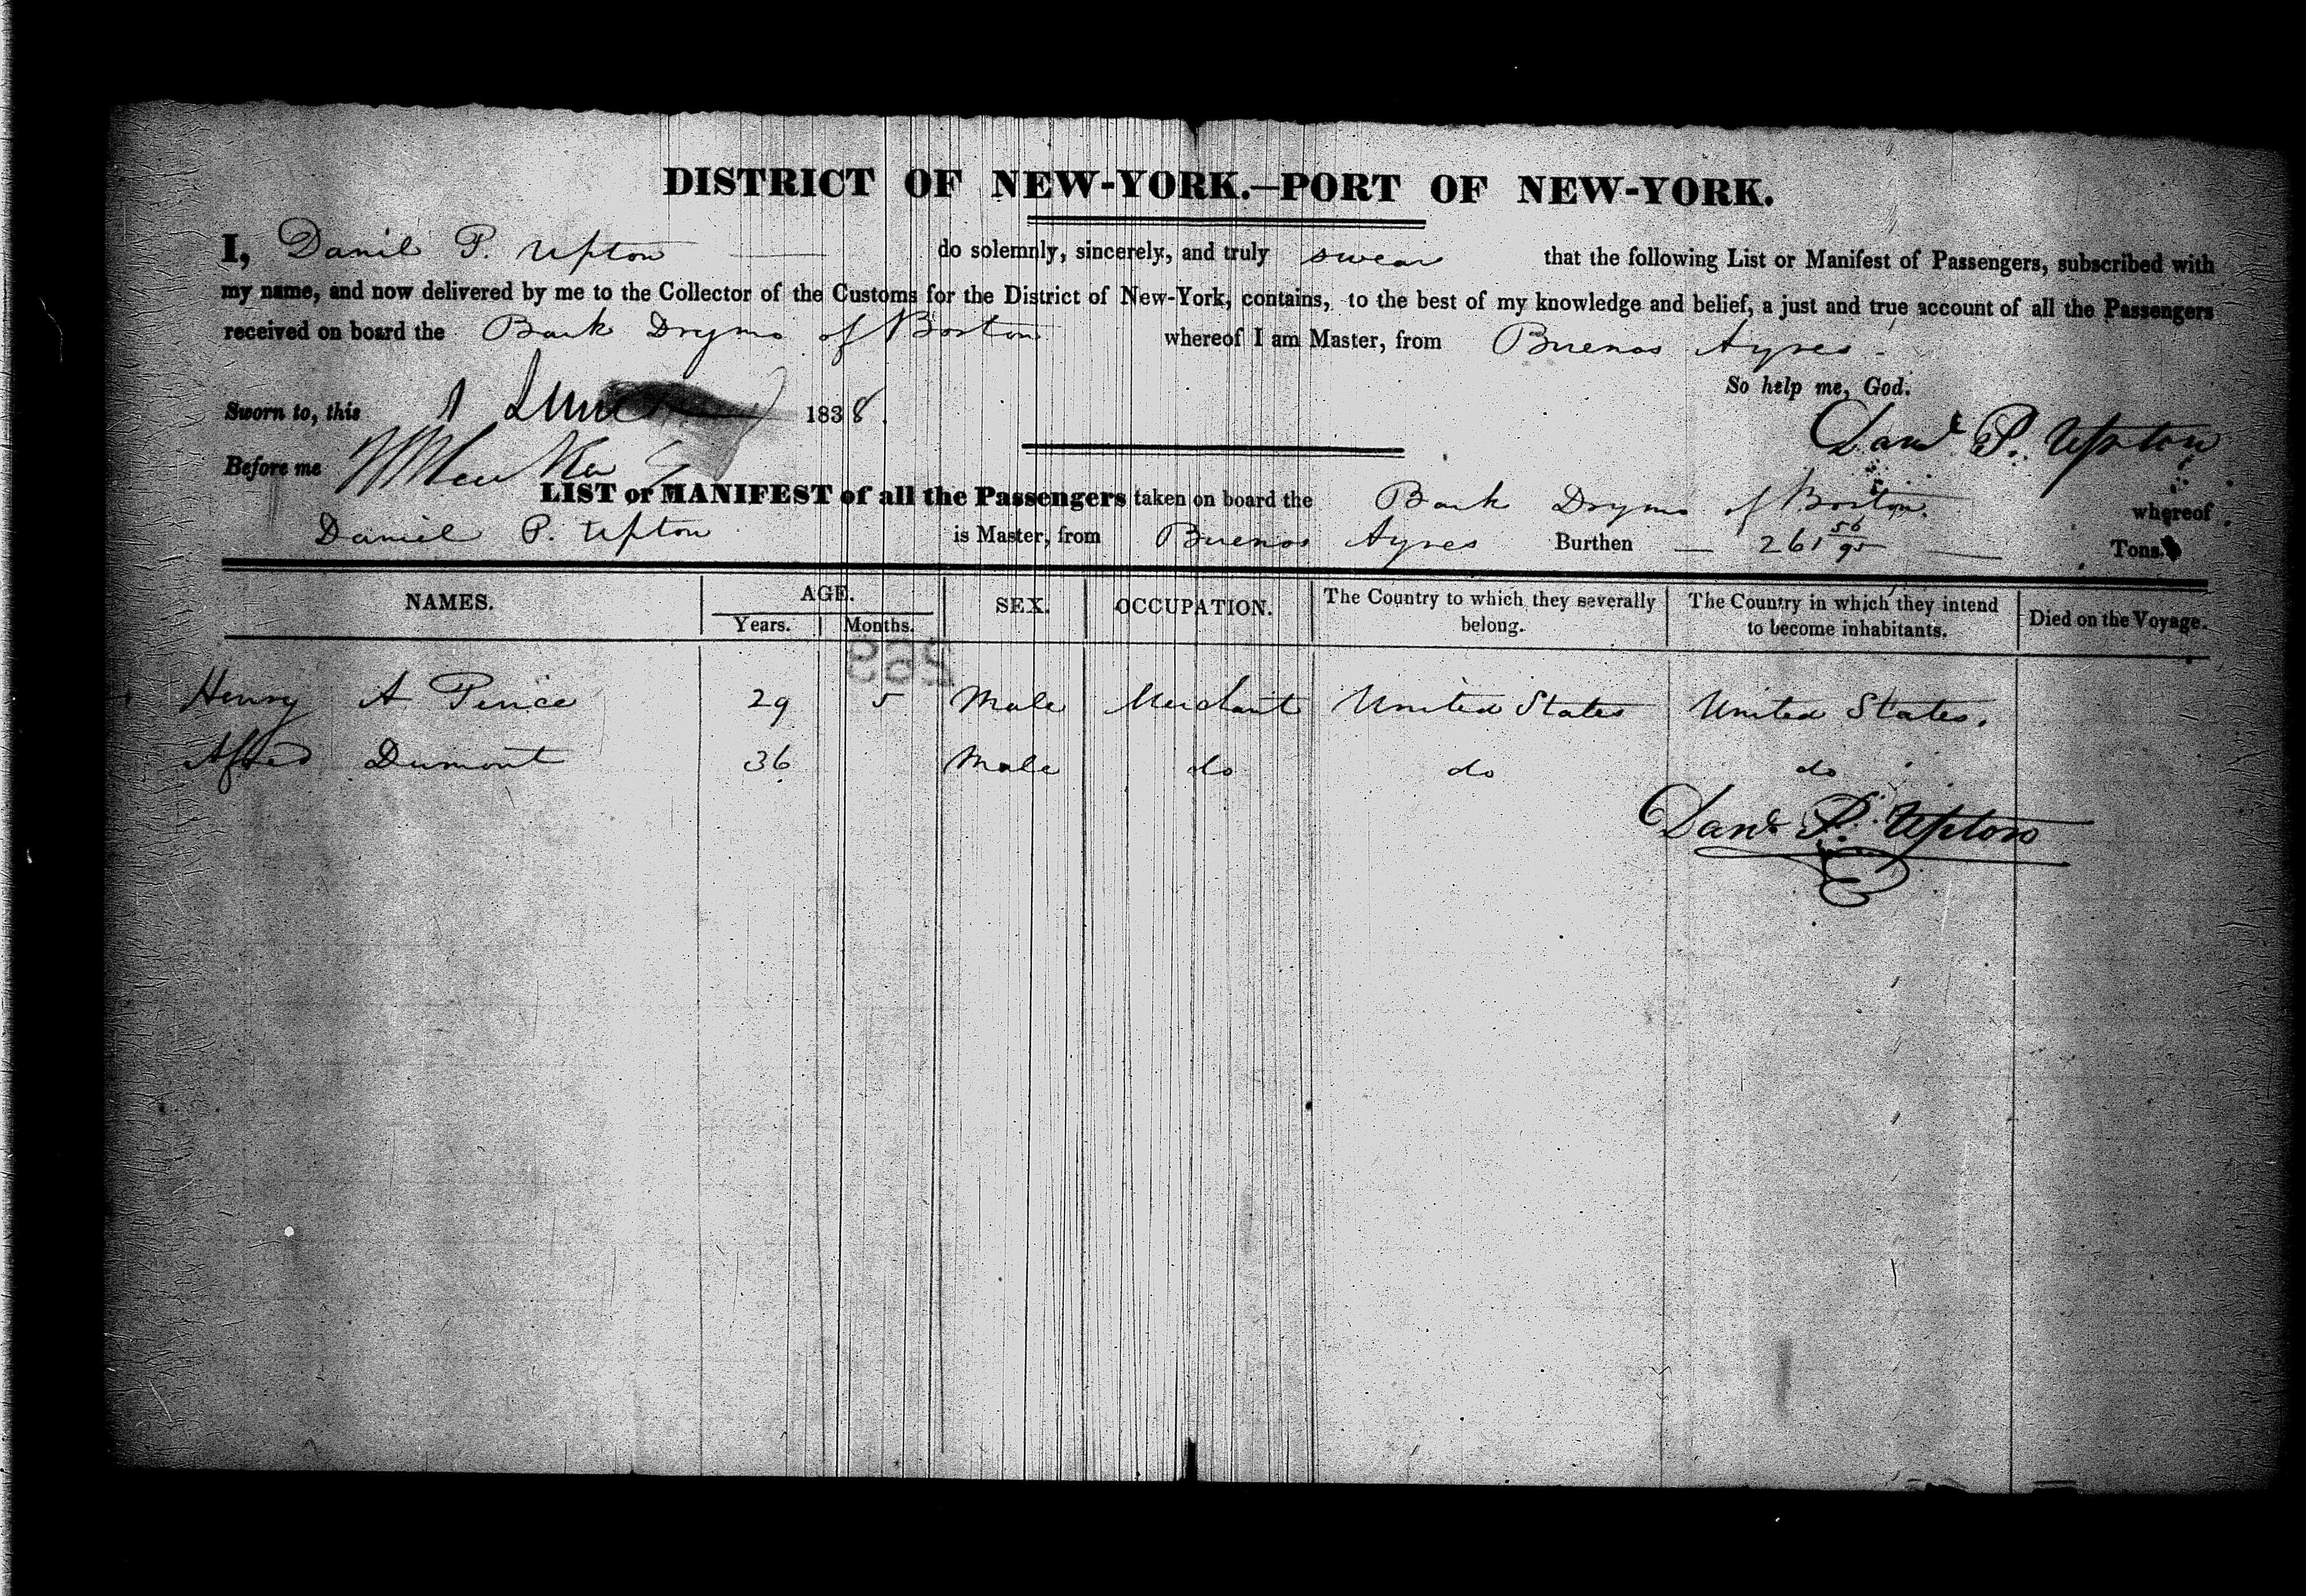 DISTRICT OF NEW-YORK.—PORT OF NEW-YORK.
I, Daniel P. Upton do solemnly, sincerely, and truly swear that the following List or Manifest of Passengers, subscribed with
my name, and now delivered by me to the Collector of the Customs for the District of New-York, contains, to the best of my knowledge and belief, a just and true account of all the Passengers
received on board the Bark Drymo of Boston whereof I am Master, from Buenos Ayres
So help me, God.
Sworn to, this 1 June 1838.
Danl. P. Upton
Before me
LIST or MANIFEST of all the Passengers taken on board the Bark Drymo of Boston. whereof
Daniel P. Upton is Master, from Buenos Ayres Burthen — 261 56/95 — Tons.
NAMES. AGE. SEX. OCCUPATION. The Country to which they severally belong. The Country in which they intend to become inhabitants. Died on the Voyage.
Years. Months.
Henry A Peirce 29 5 Male Merchant United States United States.
Dumont 36 Male do do do
Danl. P. Upton